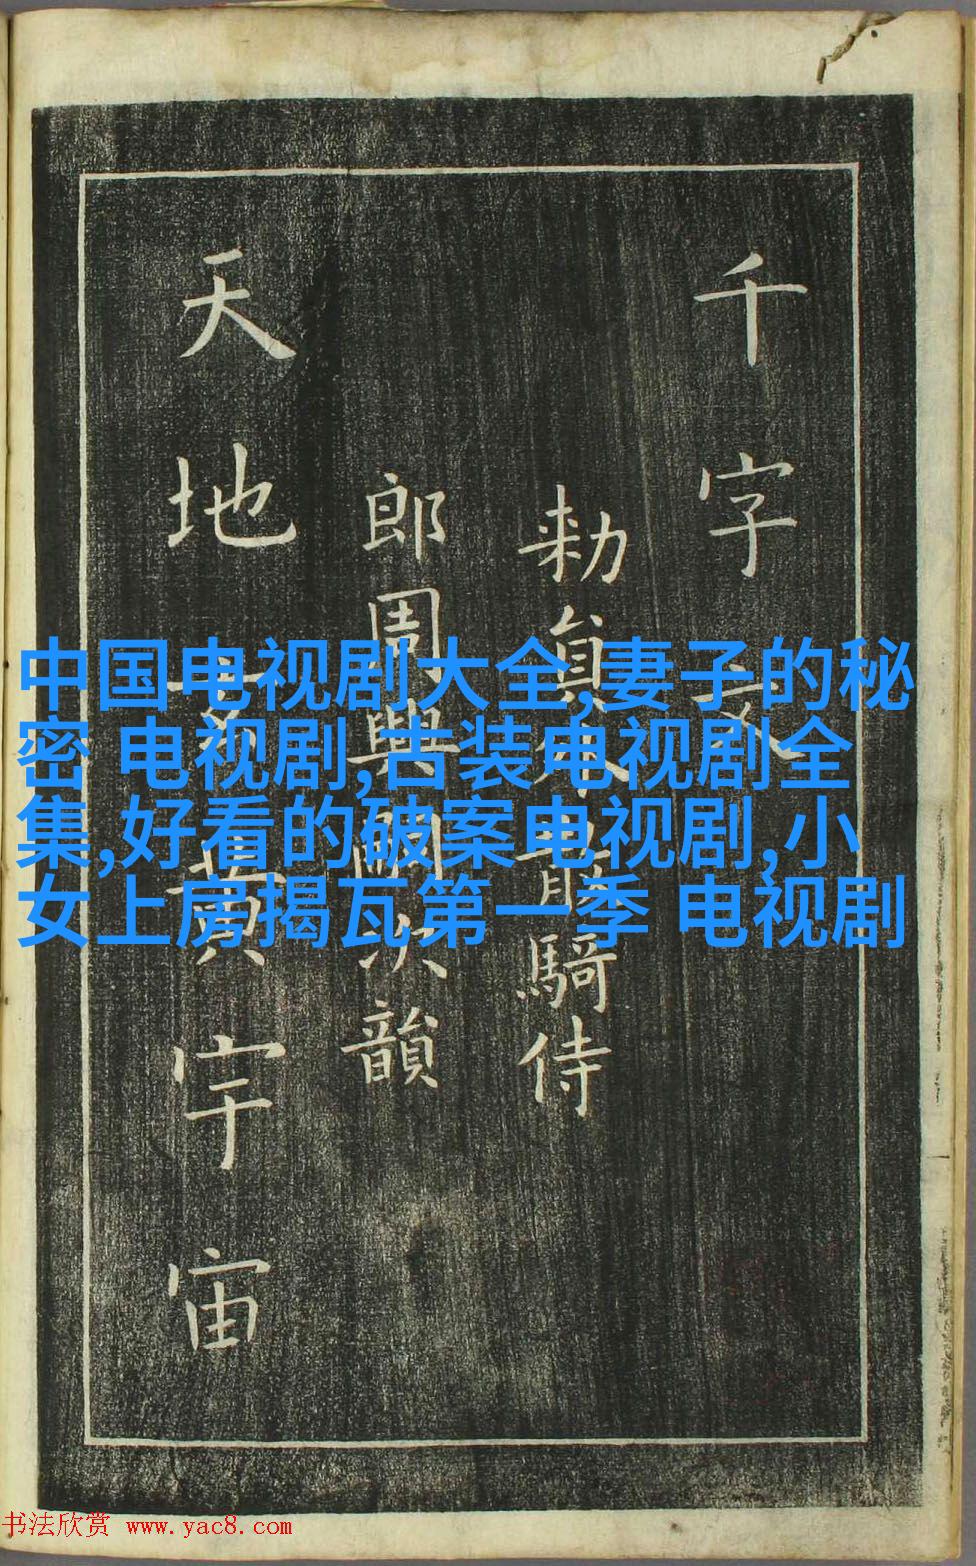 千字文
勑貟外散騎侍
郎周興嗣次韻
天地玄黃宇宙
中国电视剧大全,妻子的秘
密 电视剧,古装电视剧全
集,好看的破案电视剧,小
女上房揭瓦第一季 电视剧
书法欣赏 www.yac8.com